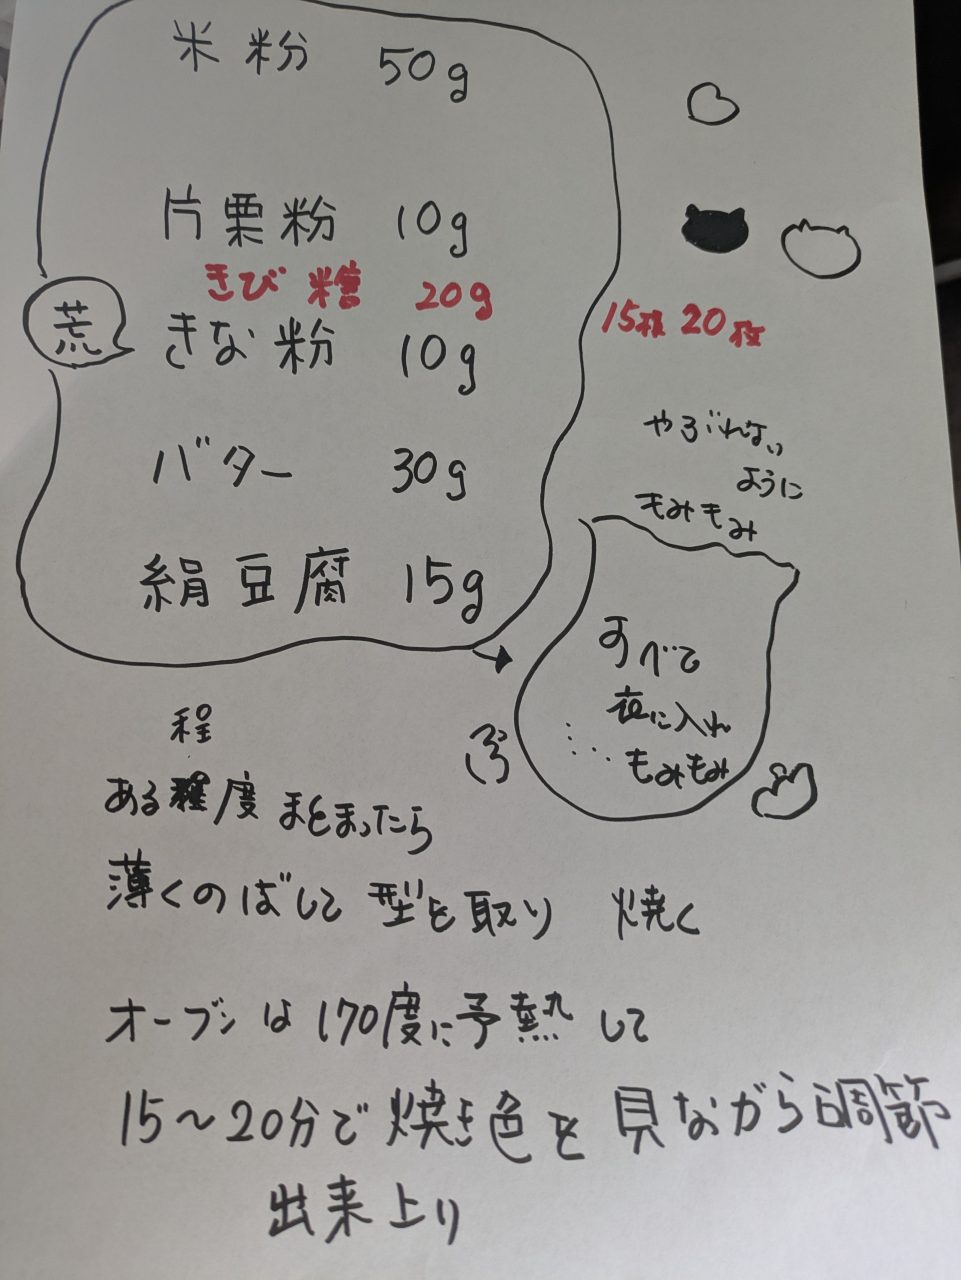 米粉 50g
片栗粉 10g
きび糖 20g
荒
きな粉 10g
バター 30g
絹豆腐 15g
15枚 20枚
やぶれない
ように
もみもみ
すべて
袋に入れ
もみもみ
程
ある程度まとまったら
薄くのばして型を取り 焼く
オーブンは170度に予熱して
15〜20分で焼き色を見ながら調節
出来上り